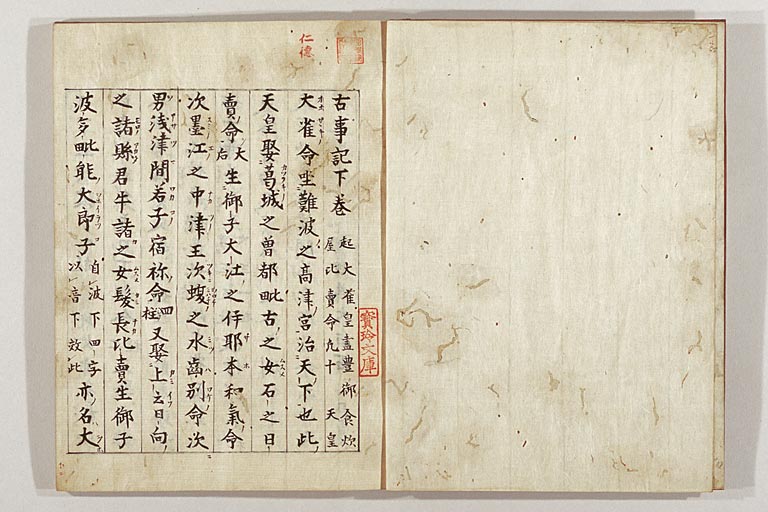 仁德
古事記下巻 起大雀皇盡豊御食炊屋比賣命九十天皇
大雀命坐難波之高津宮治天下也此
天皇娶葛城之曽都毗古之女石之日
賣命大后生御子大江之伊耶本和氣命
次墨江之中津王次蝮之水齒別命次
男淺津間若子宿祢命四柱又娶上云日向
之諸縣君牛諸之女髮長比賣生御子
波多毗能大郎子自波下四字以音下效此亦名大
寳玲文庫